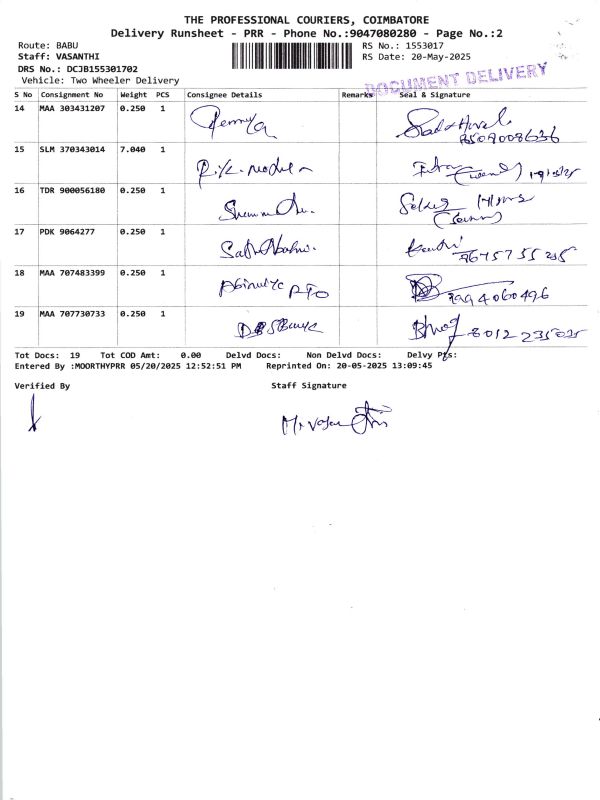 THE PROFESSIONAL COURIERS, COIMBATORE
Delivery Runsheet - PRR - Phone No.:9047080280 - Page No.:2
Route: BABU
RS No.: 1553017
Staff: VASANTHI
RS Date: 20-May-2025
DRS No.: DCJB155301702
Vehicle: Two Wheeler Delivery
DOCUMENT DELIVERY
S No Consignment No Weight PCS Consignee Details Remarks Seal & Signature
14 MAA 303431207 0.250 1
15 SLM 370343014 7.040 1
16 TDR 900056180 0.250 1
17 PDK 9064277 0.250 1
18 MAA 707483399 0.250 1 PTO 9994060496
19 MAA 707730733 0.250 1 8012235025
Tot Docs: 19 Tot COD Amt: 0.00 Delvd Docs: Non Delvd Docs: Delvy Pts:
Entered By :MOORTHYPRR 05/20/2025 12:52:51 PM Reprinted On: 20-05-2025 13:09:45
Verified By Staff Signature